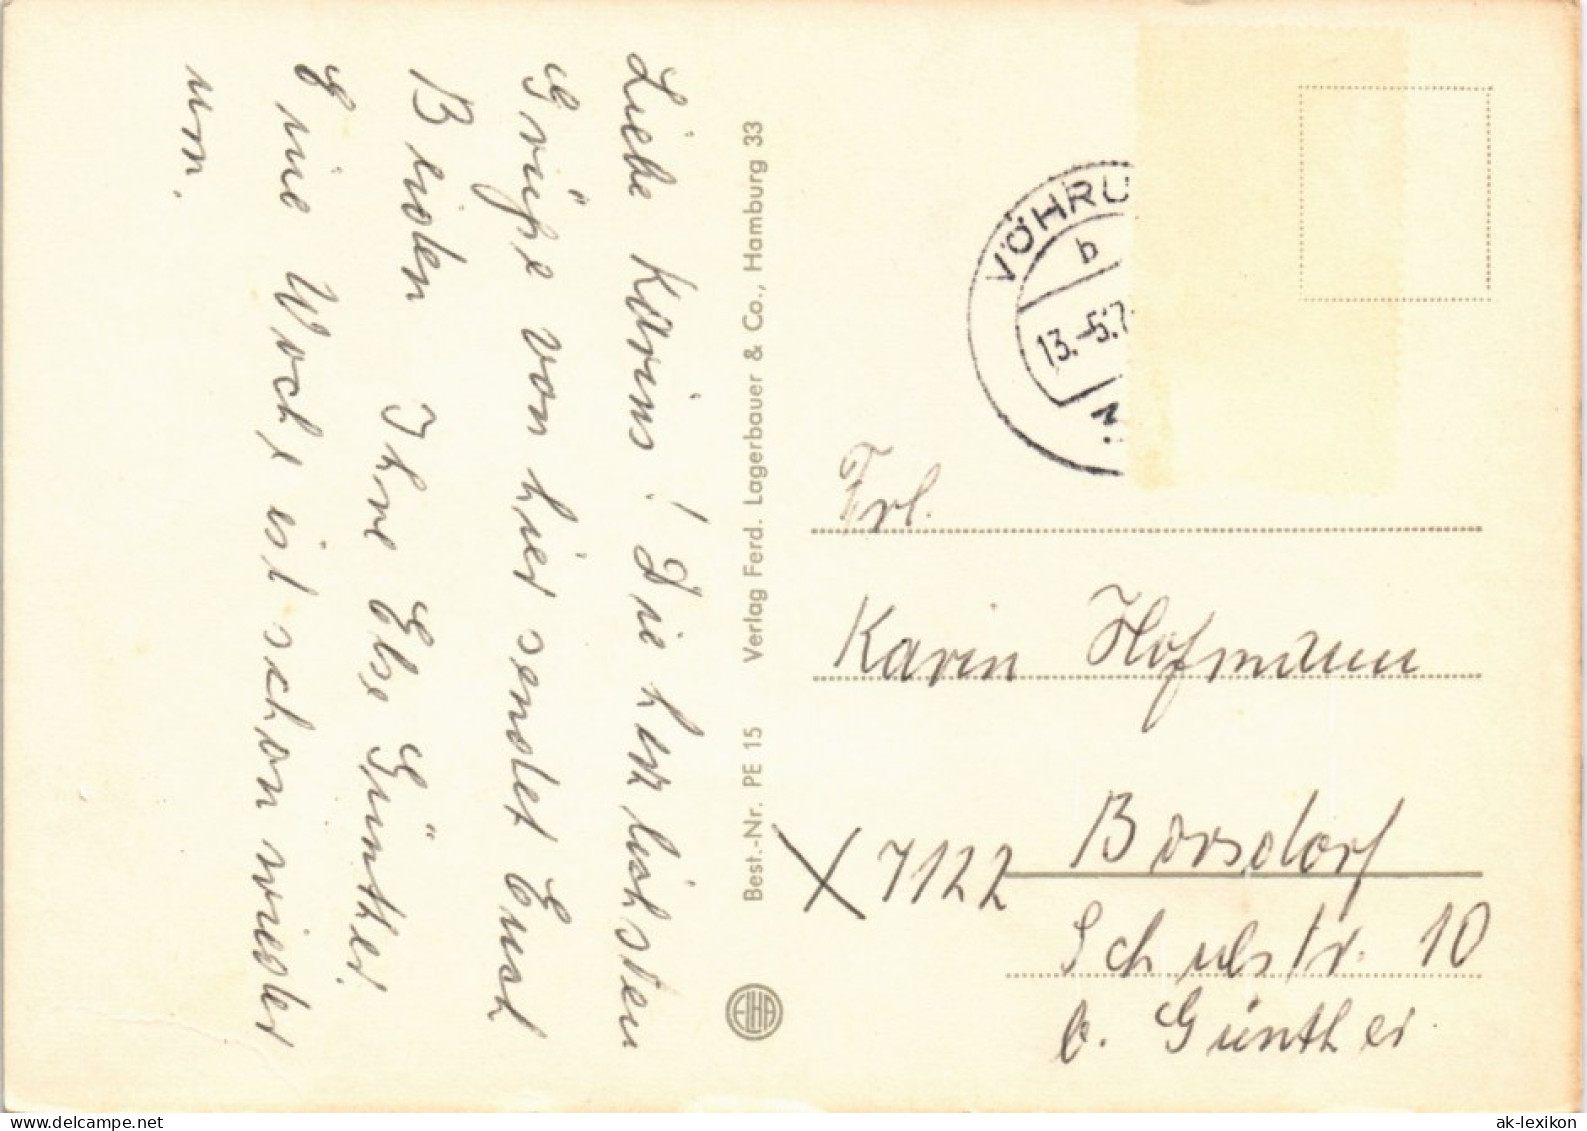 Liebe Karins! Die herzlichsten
Grüße von hier sendet Euch
Beiden Ihre Else Günther.
Eine Woche ist schon wieder
um.
Best.-Nr. PE 15 Verlag Ferd. Lagerbauer & Co., Hamburg 33
VÖHRU
b
13.-5.7
Frl.
Karin Hofmann
X 7122 Borsdorf
Schulstr. 10
b. Günther
ak-ansichtskarten.de
ak-lexikon